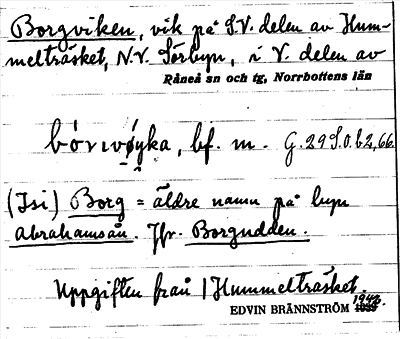 Borgviken, vik på S.V. delen av Hum-
melträsket, N.V. Sörbyn, i V. delen av
Råneå sn och tg, Norrbottens län
bf. m. G. 29 S.O. b2, 66.
(Isi) Borg = äldre namn på byn
Abrahamsån. Jfr. Borgudden.
Uppgiften från 1 Hummelträsket.
1942.
EDVIN BRÄNNSTRÖM 1939